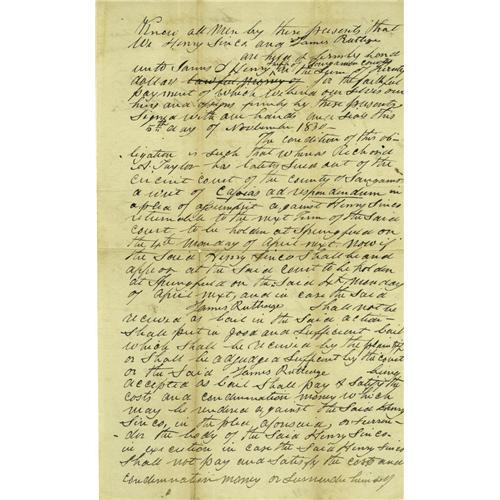 Know all Men by these presents that
We Henry Sinco and James Rutlege
are held & firmly bond
unto James S Henry
dollars lawful money of for the faithful
payment of which we bind our selves our
hiers and assigns firmly by these presents
Signed with our hands and seals this
5th day of November 183
The condition of this ob-
ligation is such that whereas Richard
A Taylor has lately sued out of the
circuit court of the county of Sangamo
a writ of Capias ad respondendum in
a plea of assumpsit against Henry Sinco
returnable to the next term of the said
court, to be holden at Springfield on
the 4th Monday of April next. Now if
the said Henry Sinco shall be and
appear at the said court to be holden
at Springfield on the said 4th Monday
of April next, and in case the said
James Rutlege shall not be
received as bail in the said action
shall put in good and sufficient bail
which shall be received by the plaintiff
or shall be adjudged sufficient by the court
or the said James Rutlege being
accepted as bail shall pay & satisfy the
costs and condemnation money which
may be rendered against the said Henry
Sinco, in the plea, aforesaid, or surren-
der the body of the said Henry Sinco
in execution in case the said Henry Sinco
shall not pay and satisfy the cost and
condemnation money or surrender himself